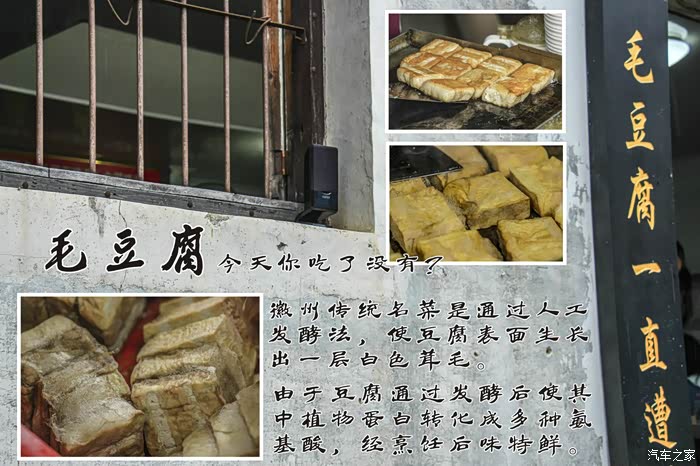 毛豆腐 今天你吃了没有?
徽州传统名菜是通过人工
发酵法,使豆腐表面生长
出一层白色茸毛。
由于豆腐通过发酵后使其
中植物蛋白转化成多种氨
基酸,经烹饪后味特鲜。
毛豆腐一直遭
汽车之家